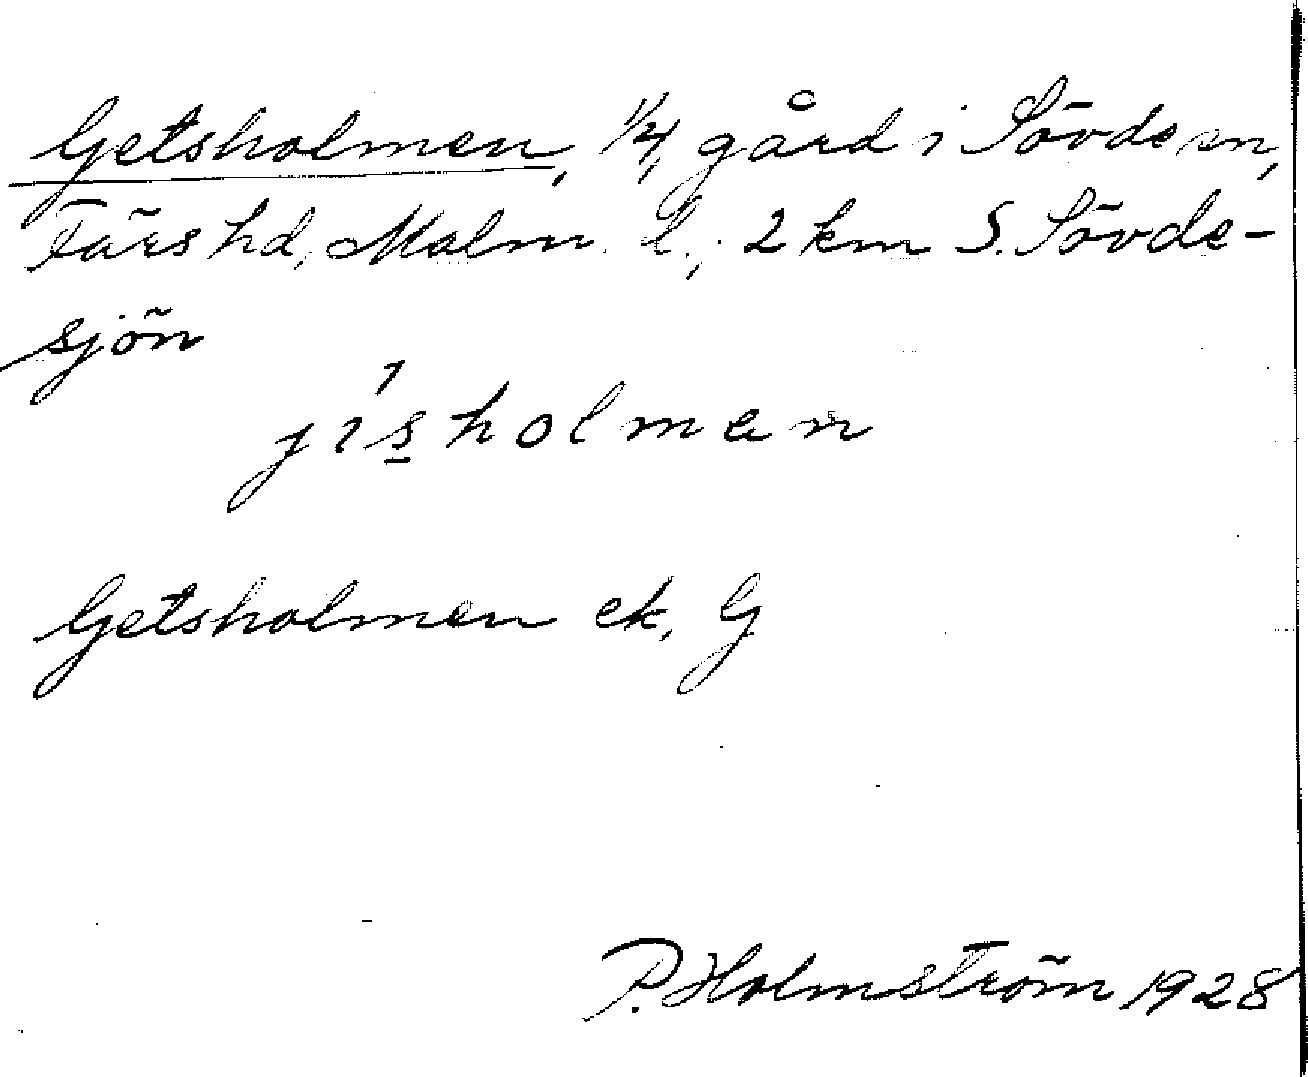 Getsholmen, 1/4 gård i Sövde sn,
Färs hd, Malm. l.; 2 km S. Sövde-
sjön
jisholmen
Getsholmen ek. G
P. Holmström 1928